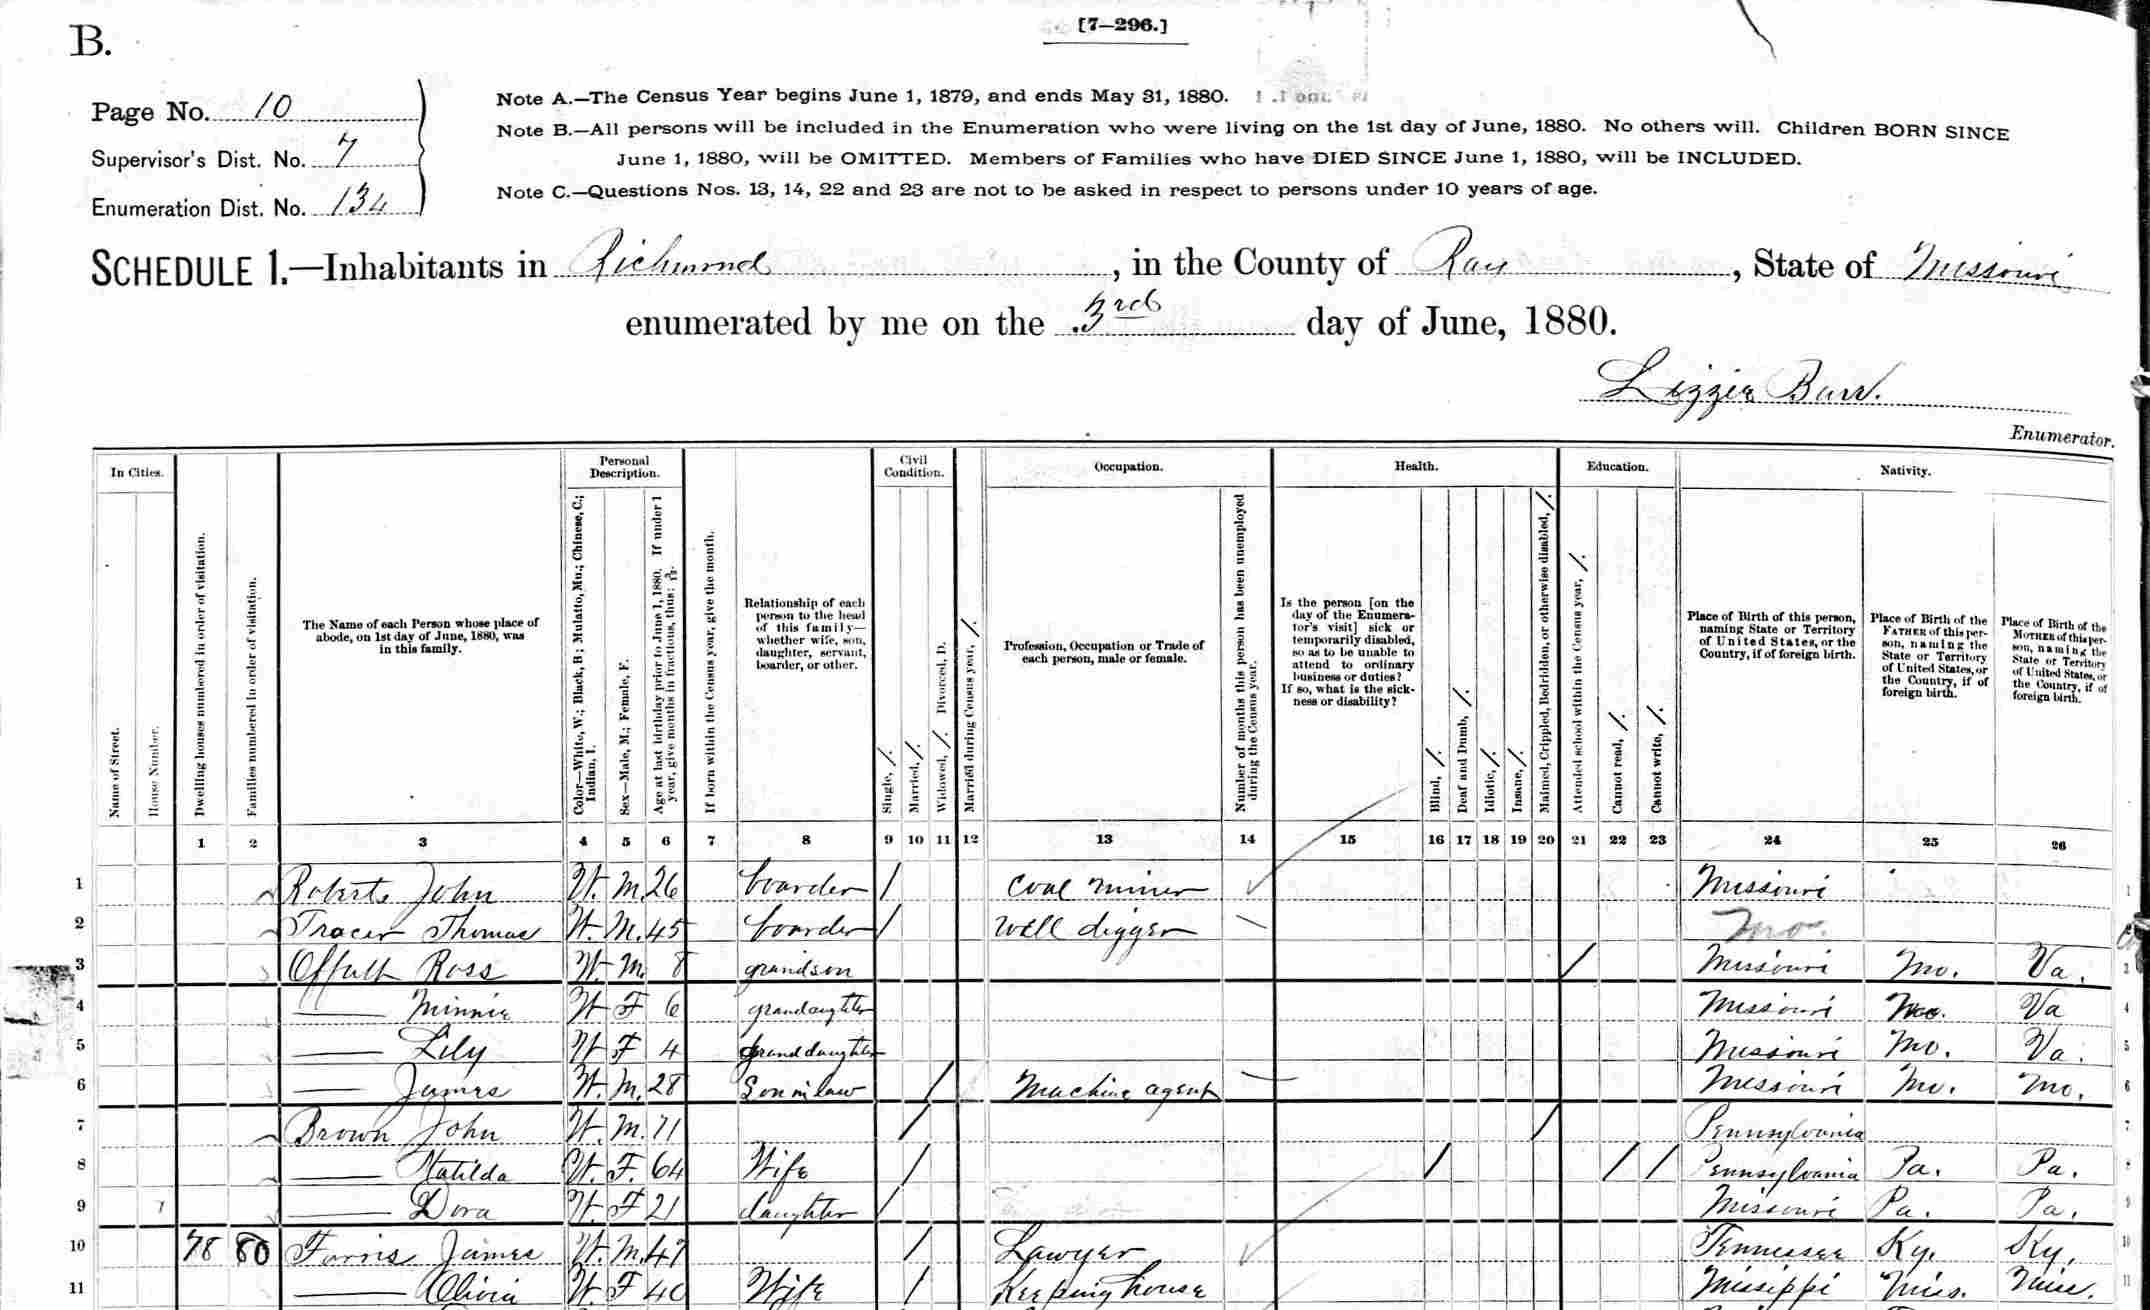 B.
[7—296.]
Page No. 10
Supervisor's Dist. No. 7
Enumeration Dist. No. 134
Note A.—The Census Year begins June 1, 1879, and ends May 31, 1880.
Note B.—All persons will be included in the Enumeration who were living on the 1st day of June, 1880. No others will. Children BORN SINCE
June 1, 1880, will be OMITTED. Members of Families who have DIED SINCE June 1, 1880, will be INCLUDED.
Note C.—Questions Nos. 13, 14, 22 and 23 are not to be asked in respect to persons under 10 years of age.
SCHEDULE 1.—Inhabitants in Richmond, in the County of Ray, State of Missouri
enumerated by me on the 3rd day of June, 1880.
Lizzie Burr.
Enumerator.
In Cities.
Personal Description.
Civil Condition.
Occupation.
Health.
Education.
Nativity.
Name of Street.
House Number.
Dwelling houses numbered in order of visitation.
Families numbered in order of visitation.
The Name of each Person whose place of
abode, on 1st day of June, 1880, was
in this family.
Color—White, W.; Black, B; Mulatto, Mu.; Chinese, C.;
Indian, I.
Sex—Male, M.; Female, F.
Age at last birthday prior to June 1, 1880. If under 1
year, give months in fractions, thus: 3/12.
If born within the Census year, give the month.
Relationship of each
person to the head
of this family—
whether wife, son,
daughter, servant,
boarder, or other.
Single, /.
Married, /.
Widowed, /. Divorced, D.
Married during Census year, /.
Profession, Occupation or Trade of
each person, male or female.
Number of months this person has been unemployed
during the Census year.
Is the person [on the
day of the Enumera-
tor's visit] sick or
temporarily disabled,
so as to be unable to
attend to ordinary
business or duties?
If so, what is the sick-
ness or disability?
Blind, /.
Deaf and Dumb, /.
Idiotic, /.
Insane, /.
Maimed, Crippled, Bedridden, or otherwise disabled, /.
Attended school within the Census year, /.
Cannot read, /.
Cannot write, /.
Place of Birth of this person,
naming State or Territory
of United States, or the
Country, if of foreign birth.
Place of Birth of the
FATHER of this per-
son, naming the
State or Territory
of United States, or
the Country, if of
foreign birth.
Place of Birth of the
MOTHER of this per-
son, naming the
State or Territory
of United States, or
the Country, if of
foreign birth.
1 2 3 4 5 6 7 8 9 10 11 12 13 14 15 16 17 18 19 20 21 22 23 24 25 26
1 Roberts John W. M. 26 boarder / Coal miner Missouri 1
2 Tracer Thomas W. M. 45 boarder / Well digger Mo.
3 Offutt Ross W. M. 8 grandson / Missouri Mo. Va. 3
4 — Minnie W F 6 grandaughter Missouri Mo. Va 4
5 — Lily W F 4 granddaughter Missouri Mo. Va. 5
6 — James W. M. 28 Son in law / Machine agent Missouri Mo. Mo. 6
7 Brown John W. M. 71 / / Pennsylvania 7
8 — Matilda W. F. 64 Wife / / / / Pennsylvania Pa. Pa. 8
9 — Dora W. F 21 daughter / Missouri Pa. Pa. 9
10 78 80 Farris James W. M. 47 / Lawyer Tennessee Ky. Ky. 10
11 — Olivia W F 40 Wife / Keeping house Missippi Miss. Miss. 11